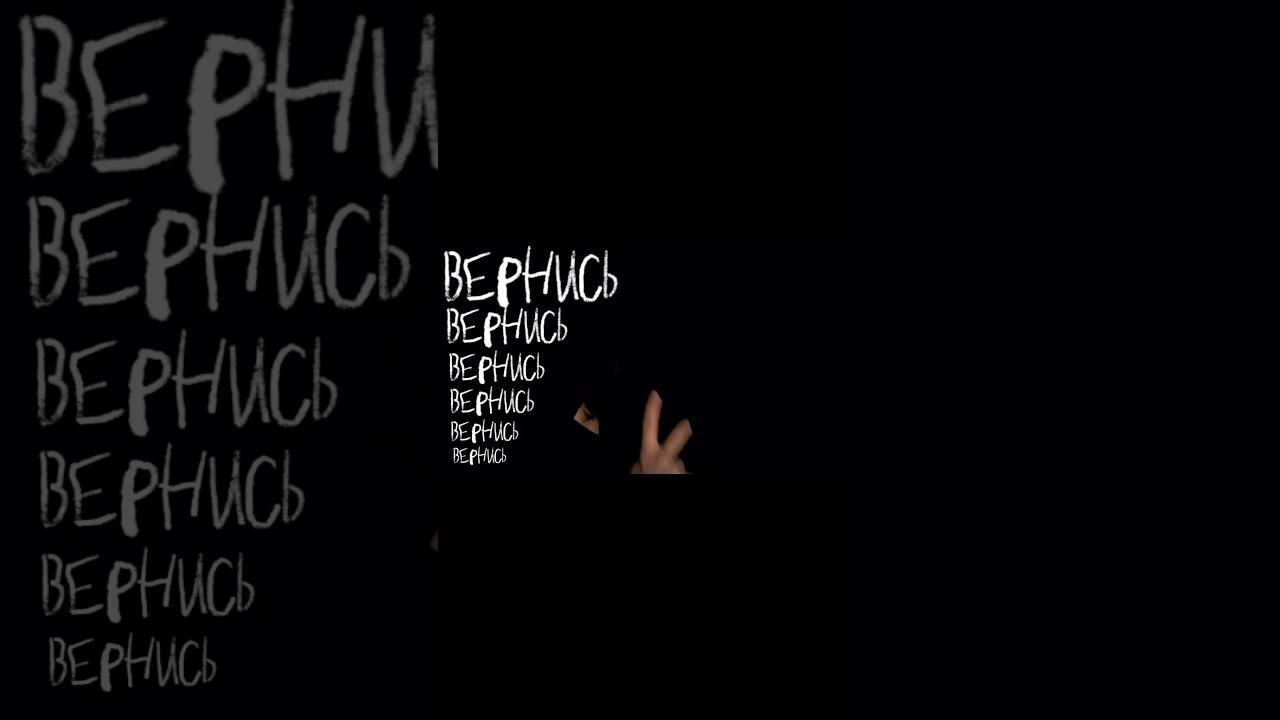 ВЕРНИ
ВЕРНИСЬ
ВЕРНИСЬ
ВЕРНИСЬ
ВЕРНИСЬ
ВЕРНИСЬ
ВЕРНИСЬ
ВЕРНИСЬ
ВЕРНИСЬ
ВЕРНИСЬ
ВЕРНИСЬ
ВЕРНИСЬ